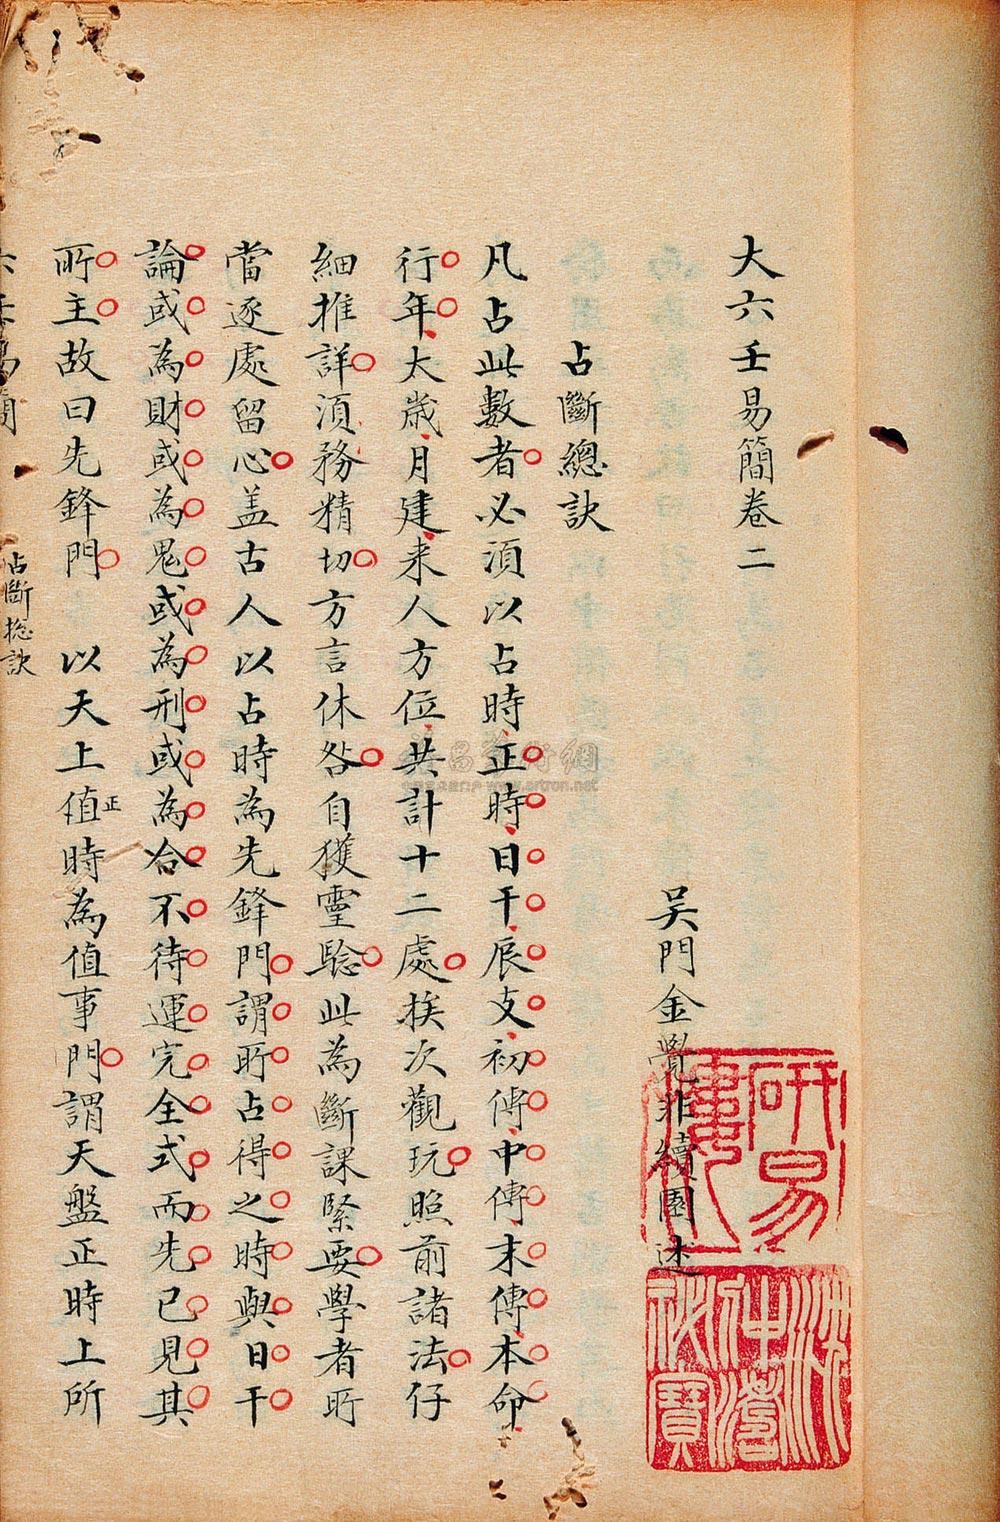 大六壬易簡卷二
吳門金覺非續園述
占斷總訣
凡占此數者必須以占時正時日干辰支初傳中傳末傳本命
行年太歲月建来人方位共計十二處挨次觀玩照前諸法仔
細推詳須務精切方言休咎自獲靈驗此為斷課緊要學者所
當逐處留心盖古人以占時為先鋒門謂所占得之時與日干
論或為財或為鬼或為刑或為合不待運完全式而先已見其
所主故曰先鋒門 以天上值正時為值事門謂天盤正時上所
六壬易簡 占斷捴訣
研易樓
沈仲濤
秘寶